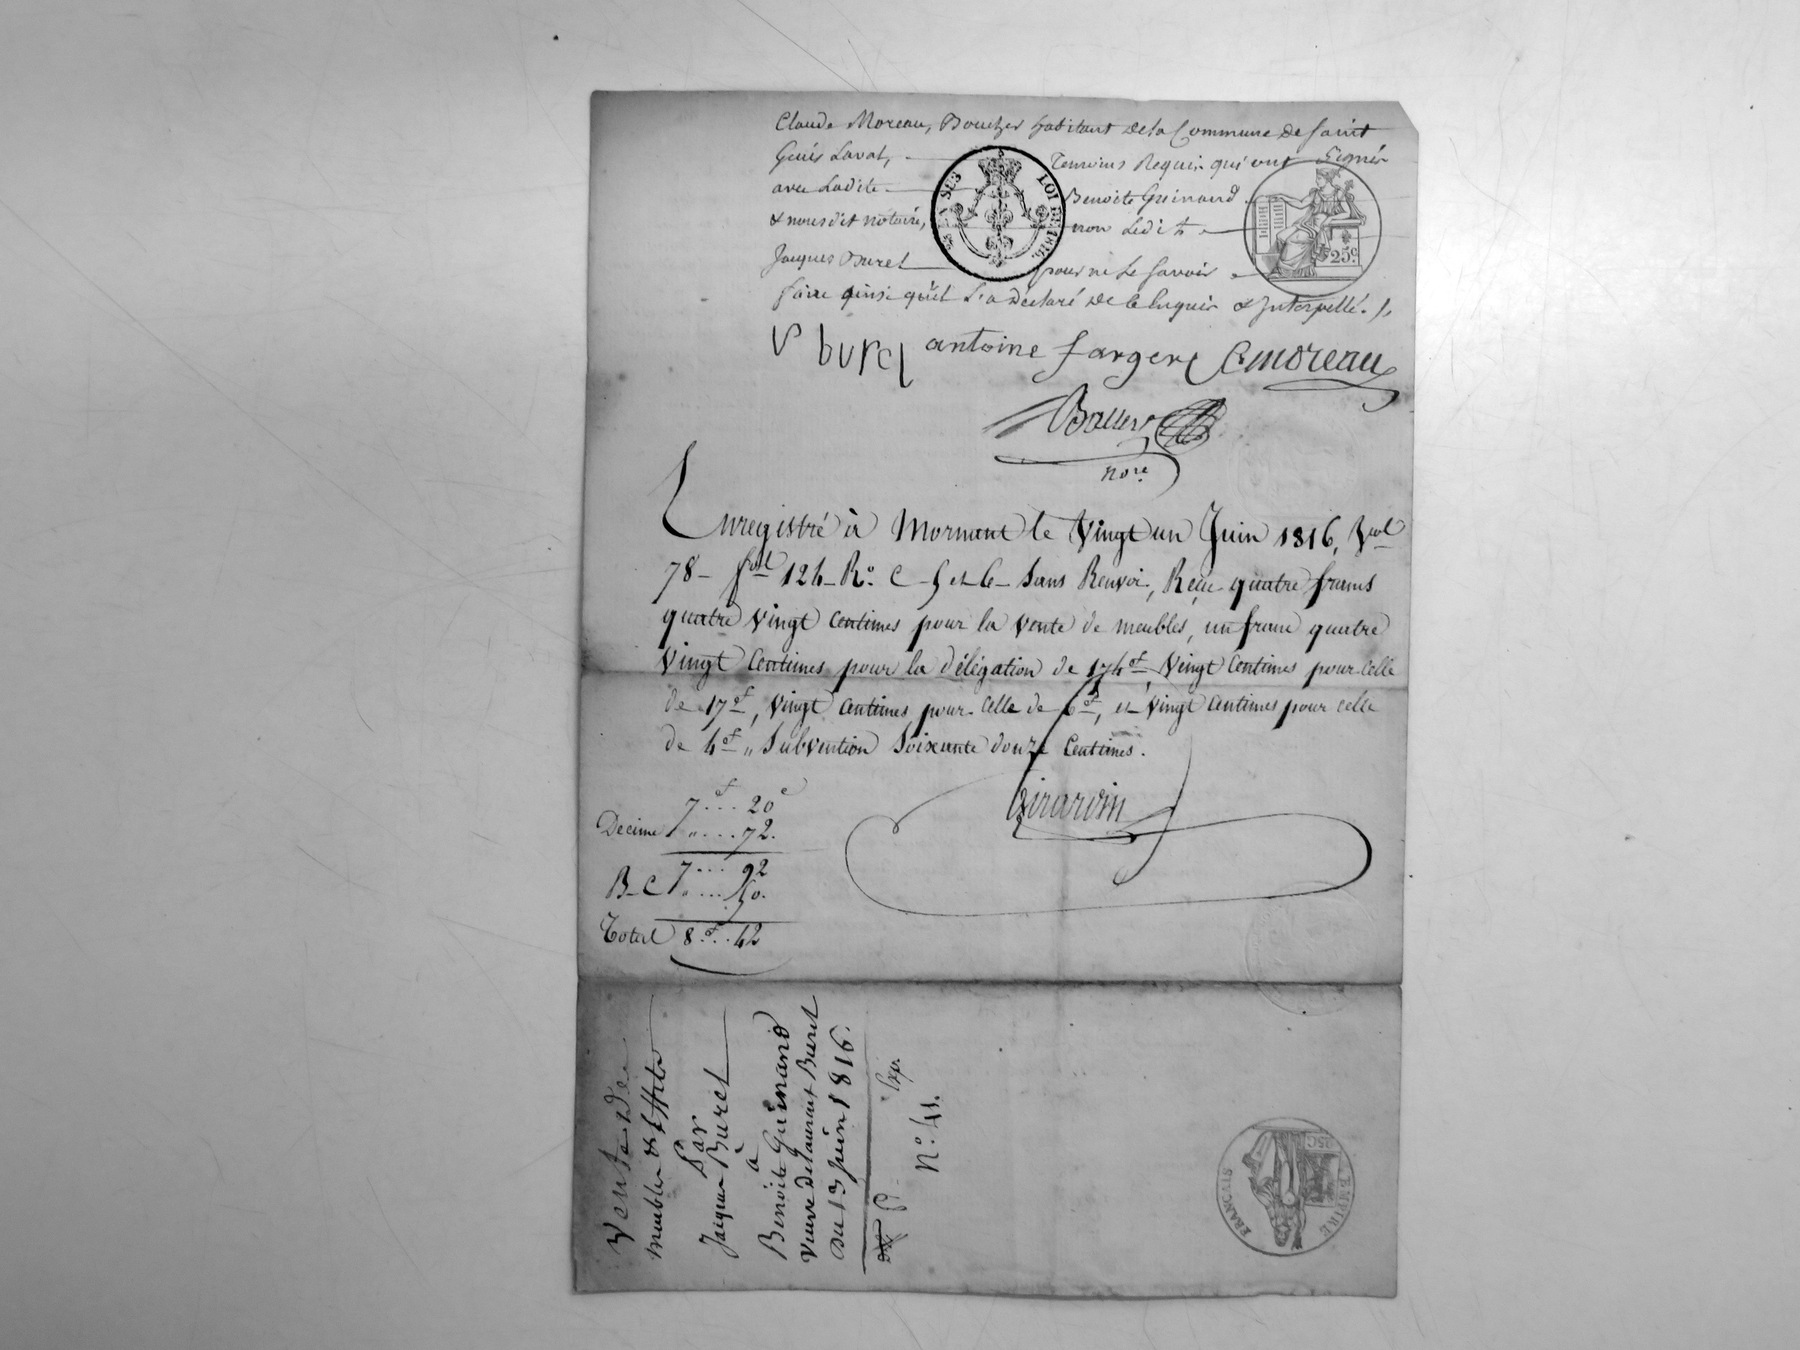 Claude Moreau, Boucher habitant de la Commune de Saint
Genis Laval, Temoins Requis qui ont Signé
avec Ladite Benoite Guinand
& nous dit notaire, non Ledit
Jacques Buret pour ne Le Savoir
faire ainsi qu'il L'a déclaré de ce Enquis & Interpellé.
V buret antoine fargere Cmoreau
nore
Enregistré à Mornant le Vingt un Juin 1816, Vol
78 - fol 124 - Ro. C - 5 et 6 - Sans Renvoi, Reçu quatre francs
quatre vingt centimes pour la vente de meubles, un franc quatre
vingt Centimes pour la délégation de 174f, Vingt Centimes pour celle
de 17f, Vingt centimes pour celle de 6f, et Vingt Centimes pour celle
de 4f " Subvention Soixante douze Centimes.
Girardin
7f ... 20c
Decime " .... 72.
7 ... 92
B-C " .... 50.
Total 8f .. 42
Vente de
meubles & Effets
Par
Jacques Buret
à
Benoite Guinand
Veuve de Laurent Buret
Du 13 juin 1816.
Exp.
No. 41.
LOI DE 1816.
25c
EMPIRE
FRANÇAIS
25C